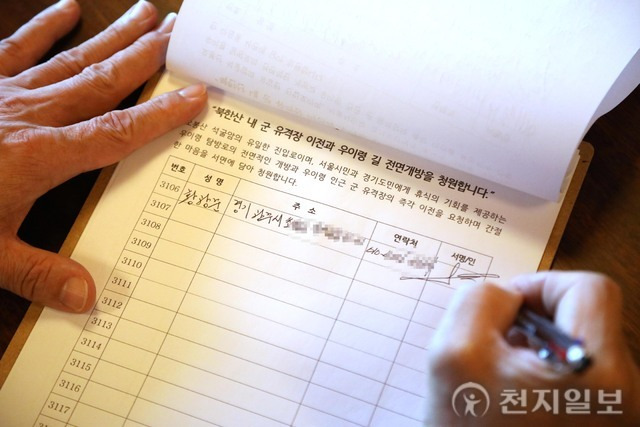 "북한산 내 군 유격장 이전과 우이령 길 전면개방을 청원합니다."
석굴암의 유일한 진입로이며, 서울시민과 경기도민에게 휴식의 기회를 제공하는
우이령 탐방로의 전면적인 개방과 우이령 인근 군 유격장의 즉각 이전을 요청하며 간절
한 마음을 서면에 담아 청원합니다.
번호 성 명 주 소 연락처 서명/인
3106 경기
3107
3108
3109
3110
3111
3112
3113
3114
3115
3116
3117
천지일보